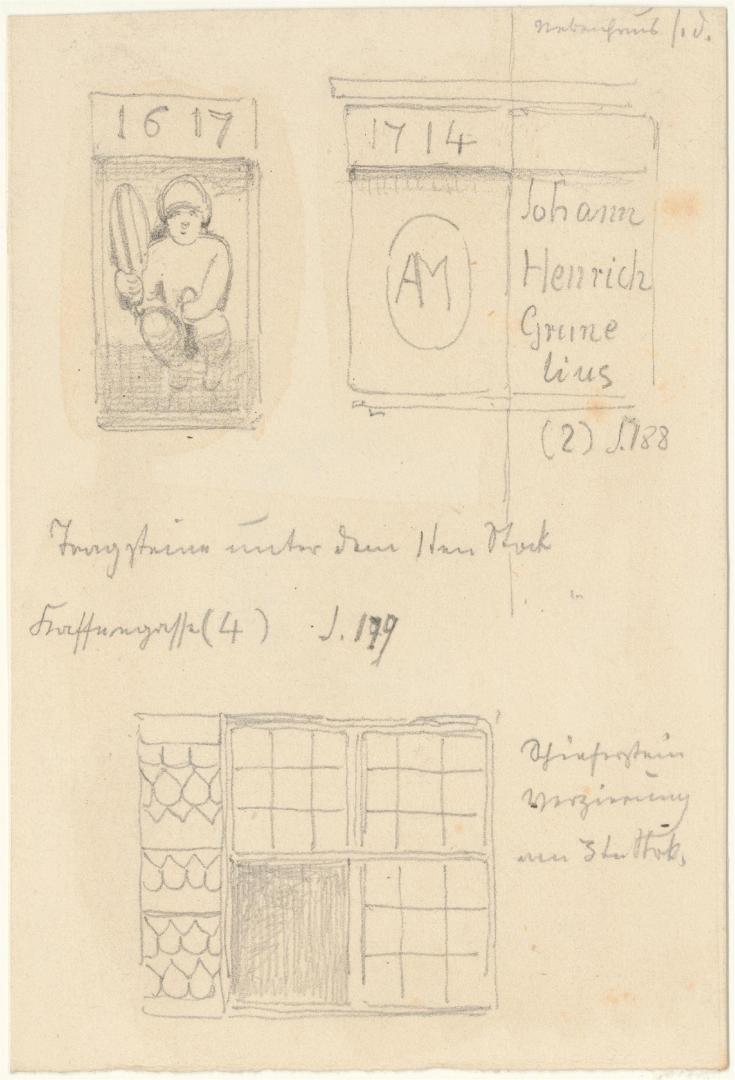 Nebenhaus s. d.
1617
1714
AM
Johann
Henrich
Grune
lius
(2) S. 188
Tragsteine unter dem 1ten Stock
(4) S. 179
Schieferstein
Verzierung
am 3ten Stock.